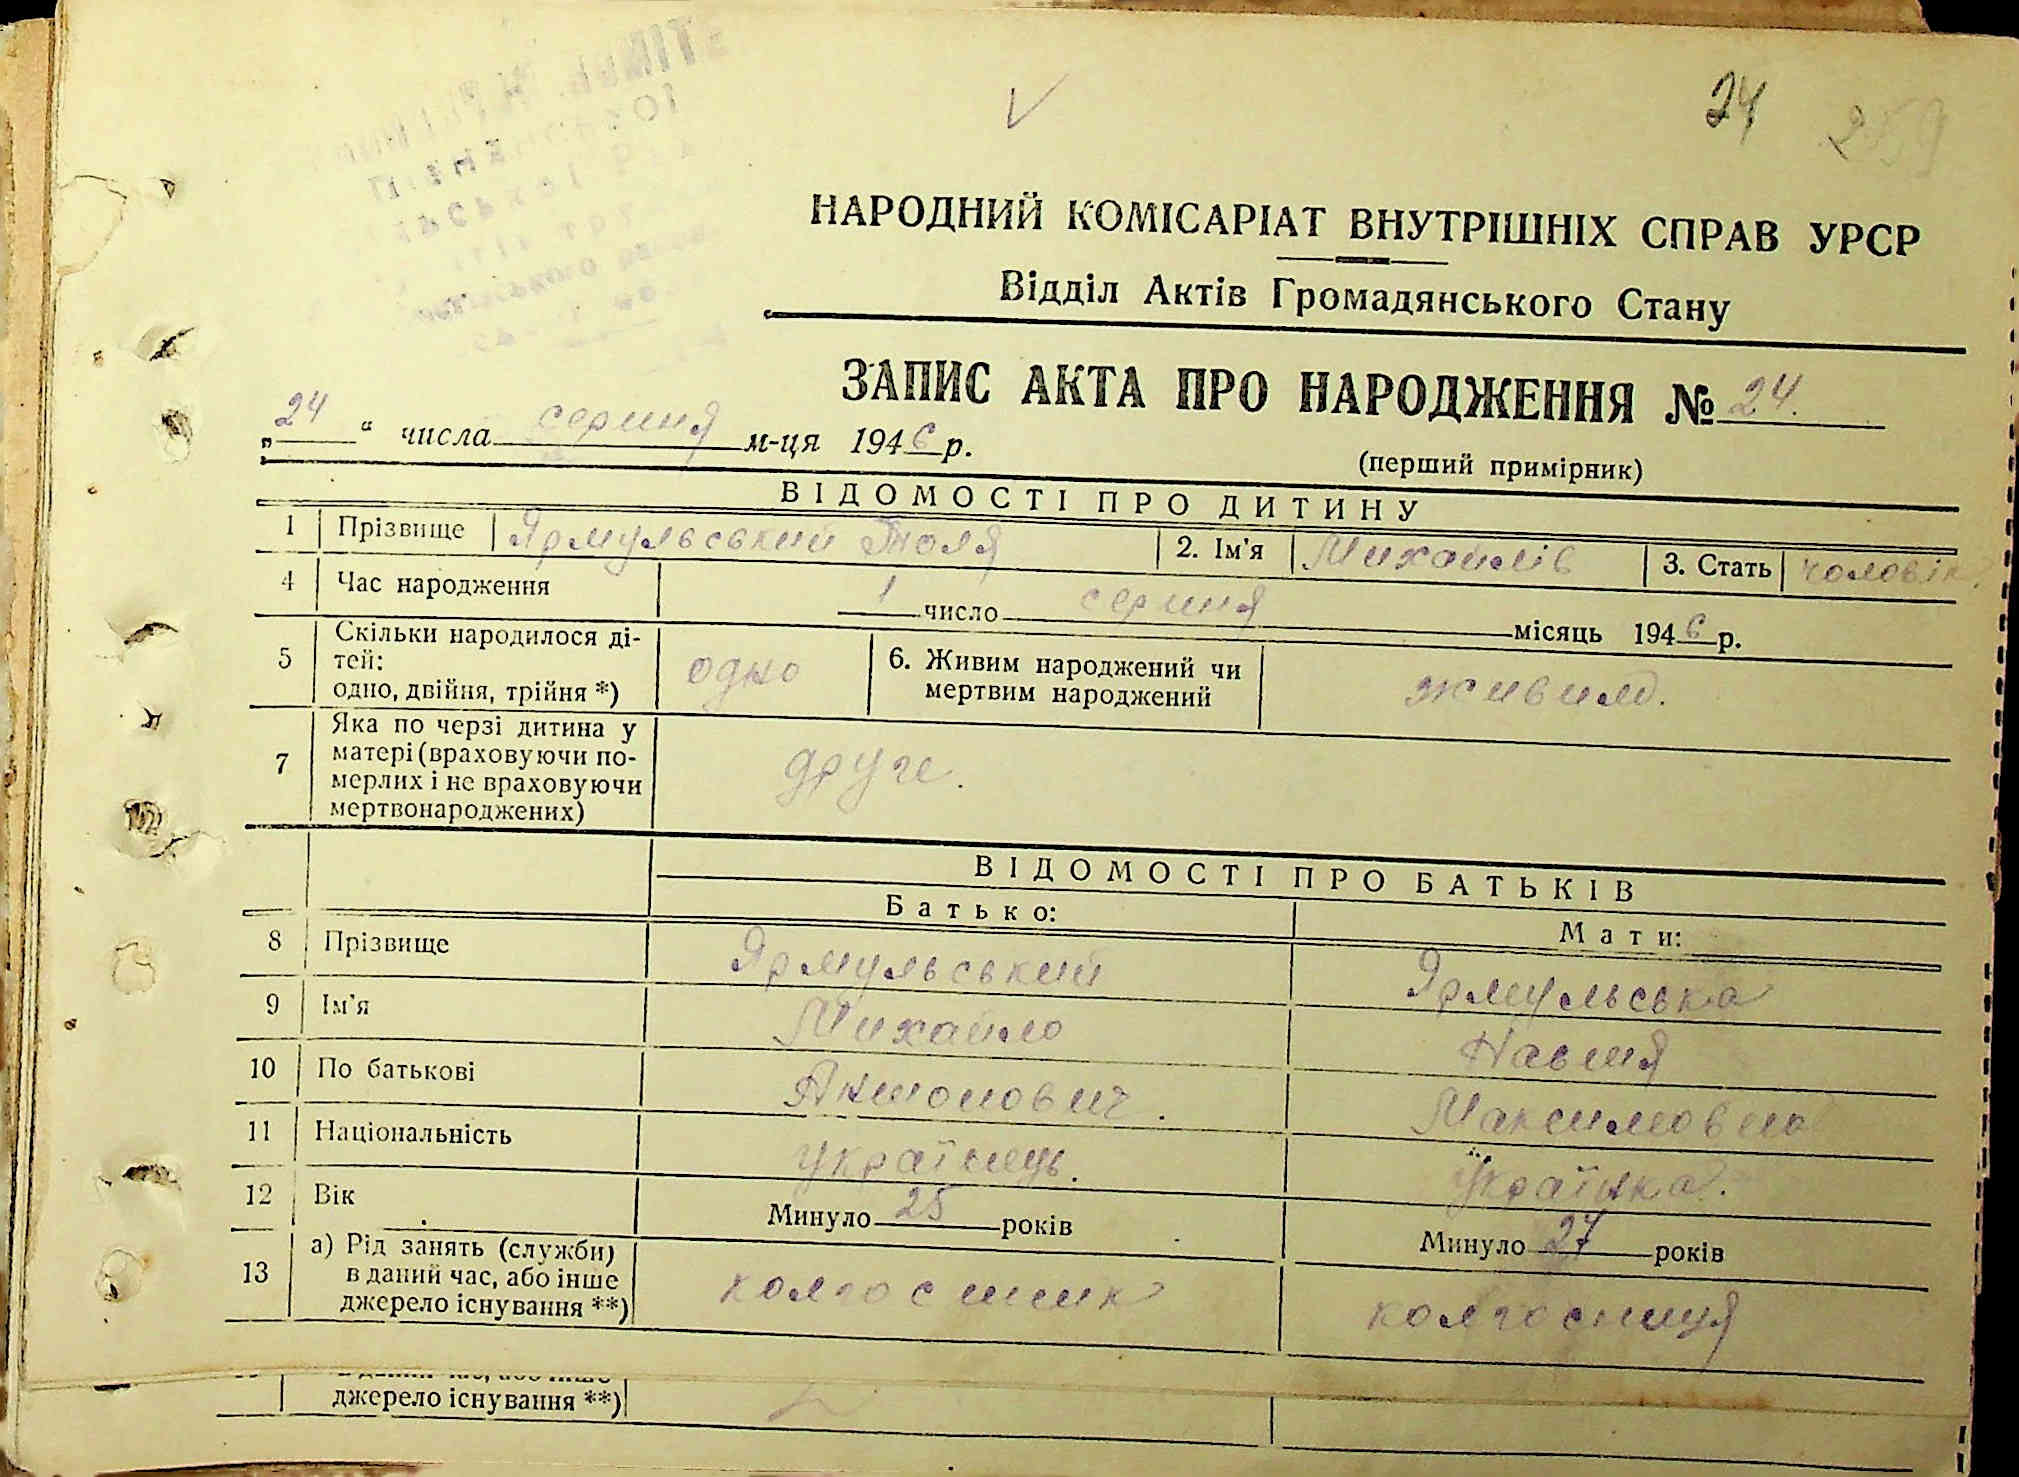 24
259
НАРОДНИЙ КОМІСАРІАТ ВНУТРІШНІХ СПРАВ УРСР
Відділ Актів Громадянського Стану
ЗАПИС АКТА ПРО НАРОДЖЕННЯ № 24.
„24“ числа серпня м-ця 1946 р.
(перший примірник)
ВІДОМОСТІ ПРО ДИТИНУ
1 Прізвище Ярмульський Толя 2. Ім'я Михайлів 3. Стать чоловік
4 Час народження 1 число серпня місяць 1946 р.
5 Скільки народилося ді-
тей:
одно, двійня, трійня *) одно 6. Живим народжений чи
мертвим народжений живим.
7 Яка по черзі дитина у
матері (враховуючи по-
мерлих і не враховуючи
мертвонароджених) друге.
ВІДОМОСТІ ПРО БАТЬКІВ
Батько: Мати:
8 Прізвище Ярмульський Ярмульська
9 Ім'я Михайло
10 По батькові Антонович. Максимовна
11 Національність українець. Українка.
12 Вік Минуло 25 років Минуло 27 років
13 а) Рід занять (служби)
в даний час, або інше
джерело існування **) колгоспник колгосниця
джерело існування **)